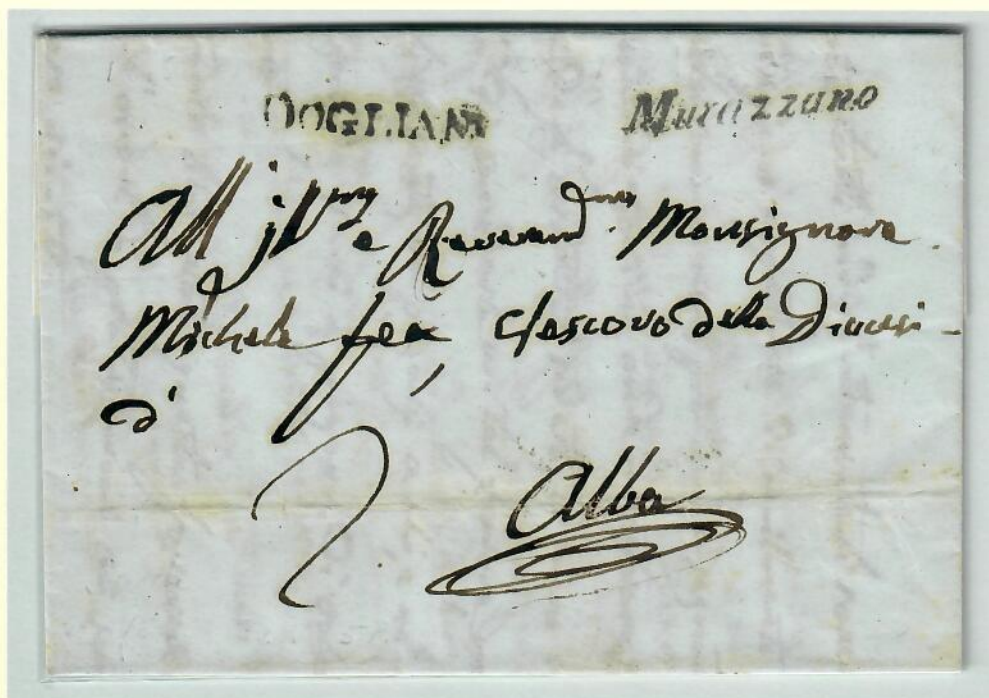 DOGLIANI Murazzano
All' Ill.mo e Reverend.mo Monsignore
Michele Fea, Vescovo della Diocesi
d'
2 Alba